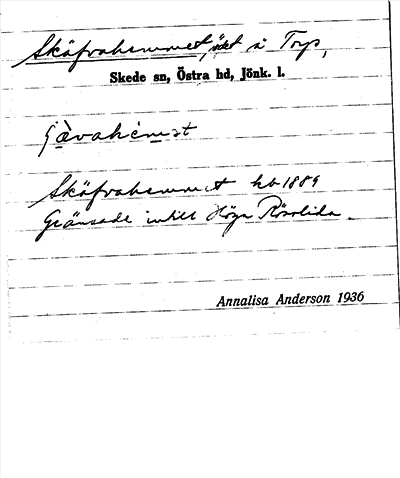 Skäfvahemmet, öde å Torp,
Skede sn, Östra hd, Jönk. l.
ʃǟvahemət
Skäfvahemmet hb 1889
Gränsade intill Höga Rösolida
Annalisa Anderson 1936